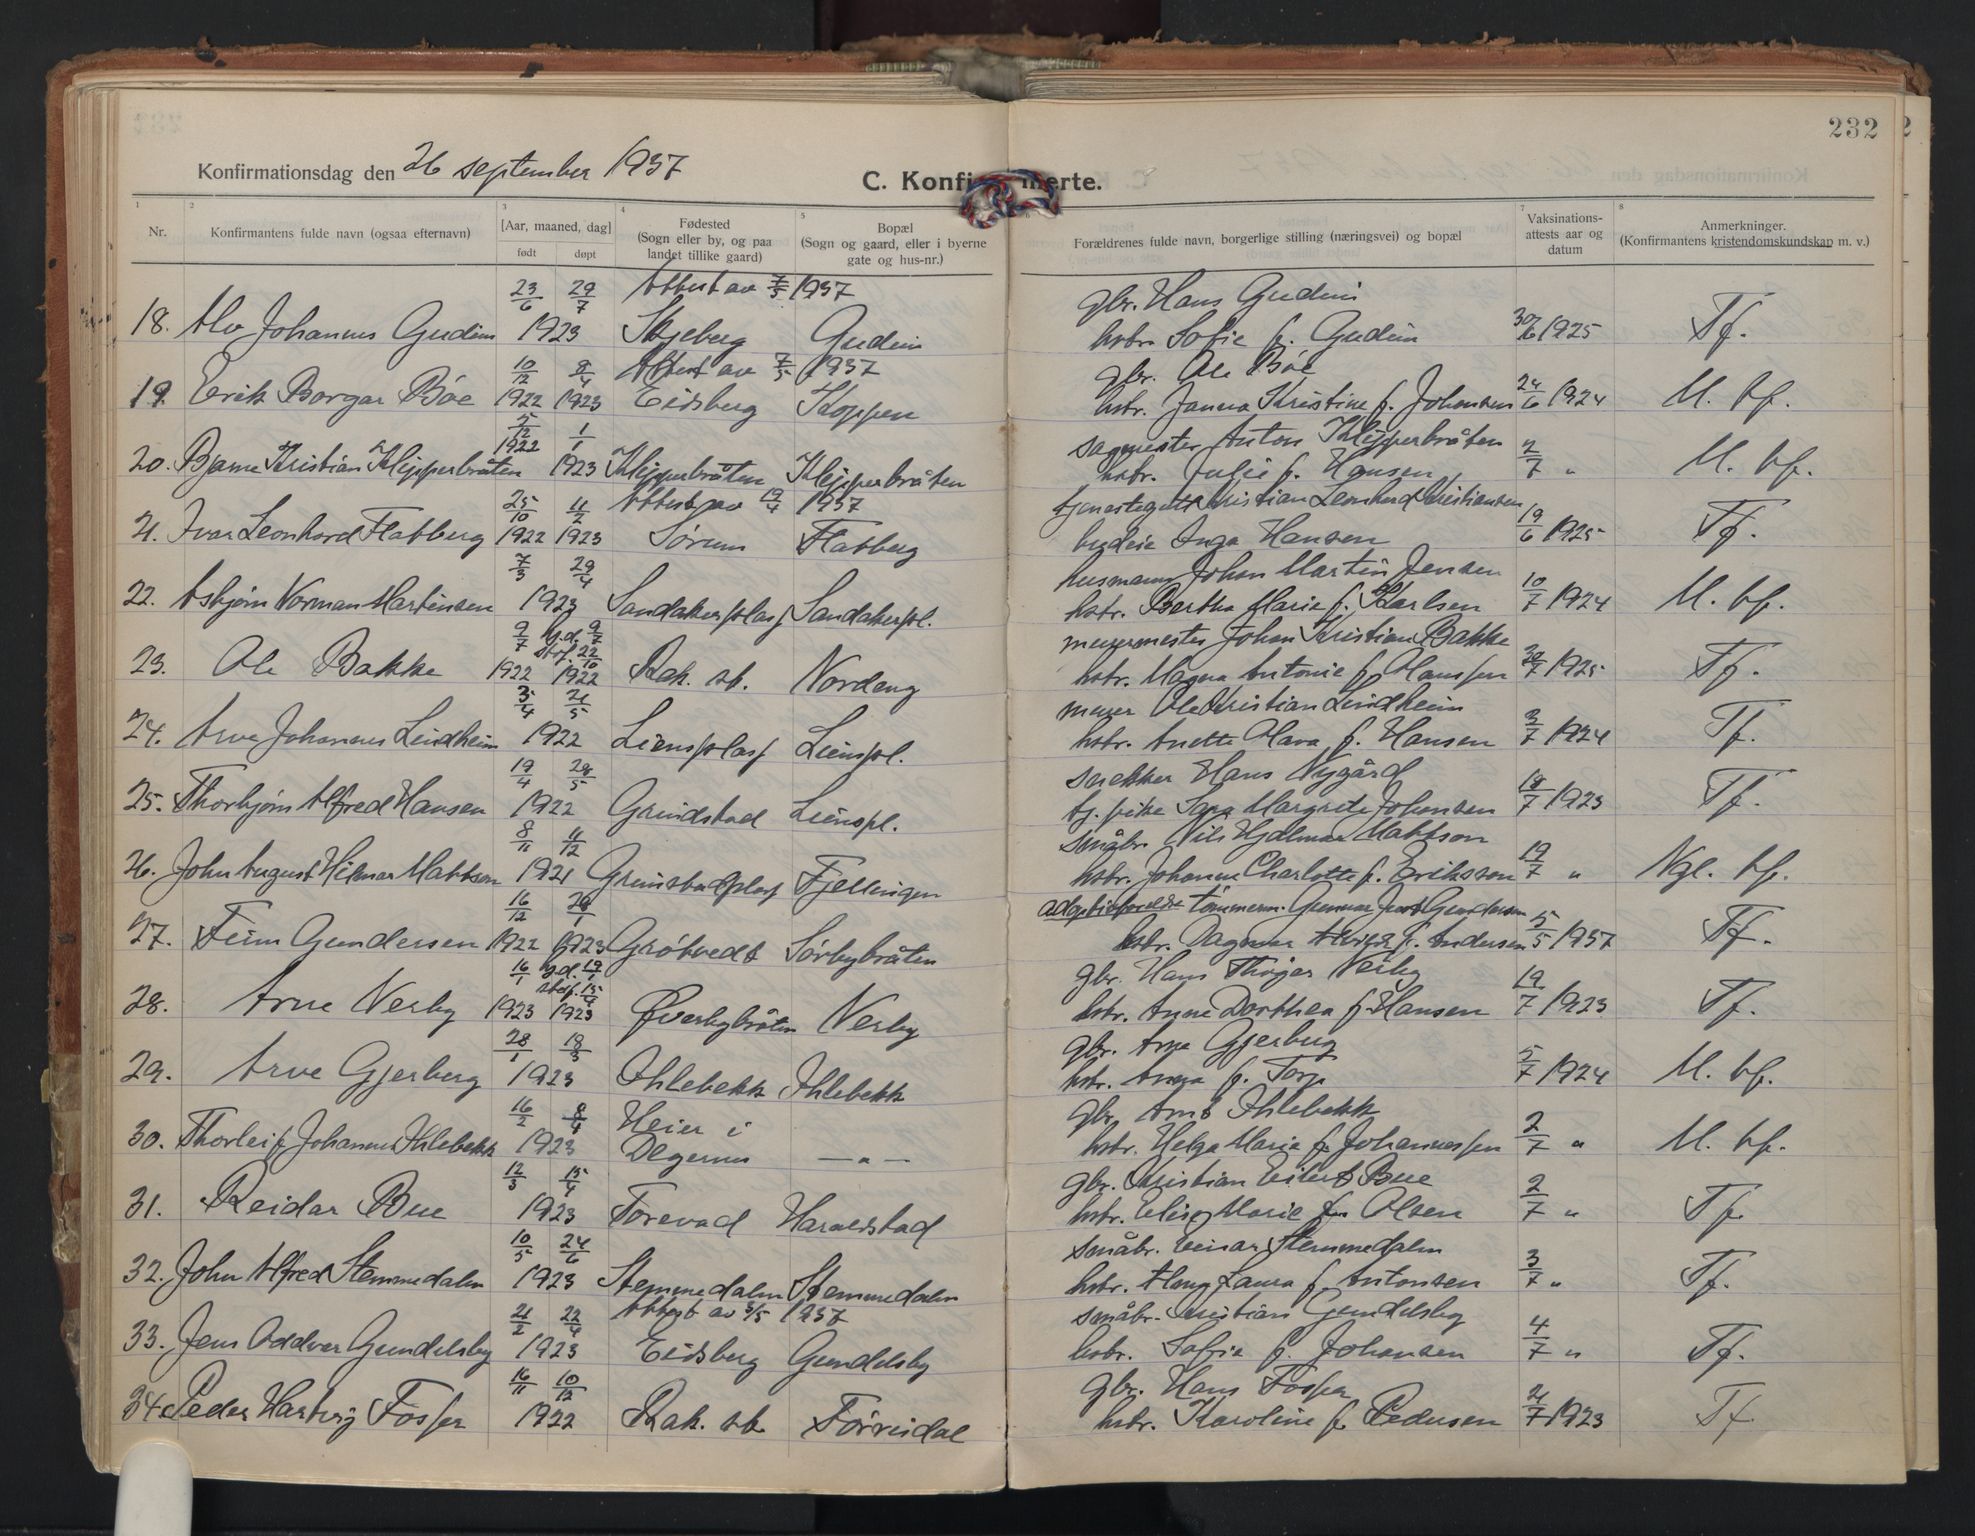 232
Konfirmationsdag den 26 september 1937
C. Konfirmerte.
1 2 3 4 5 6 7 8
Nr. Konfirmantens fulde navn (ogsaa efternavn) [Aar, maaned, dag] født døpt Fødested (Sogn eller by, og paa landet tillike gaard) Bopæl (Sogn og gaard, eller i byerne gate og hus-nr.) Forældrenes fulde navn, borgerlige stilling (næringsvei) og bopæl Vaksinations-attests aar og datum Anmerkninger. (Konfirmantens kristendomskundskap m. v.)
23/6 29/7 Attest av 7/5 1937 gbr. Hans Gudim
18. Alv Johannes Gudim 1923 Skjeberg Gudim hstr. Sofie f. Gudim 30/6 1925 Tf.
10/12 8/4 Attest av 7/5 1937 gbr. Ole Böe
19. Erik Borgar Böe 1922 1923 Eidsberg Koppen hstr. Janna Kristine f. Johansen 24/6 1924 M. tf.
5/12 1922 1/1 sagmester Anton Klypperbråten
20. Bjarne Kristian Klypperbråten 1923 Klypperbråten Klypperbråten hstr. Julie f. Hansen 2/7 " M. tf.
25/10 11/2 Attest av 19/4 1937 tjenestegutt Kristian Leonhard Kristiansen
21. Ivar Leonhard Flatberg 1922 1923 Sörum Flatberg budeie Inga Hansen 19/6 1925 Tf.
7/3 29/4 husmann Johan Martin Jensen
22. Asbjörn Norman Martinsen 1923 Sandakerplass Sandakerpl. hstr. Bertha Marie f. Karlsen 10/7 1924 M. tf.
9/7 hj.d. 9/7 stadf. 22/10 meiermester Johan Kristian Bakke
23. Ole Bakke 1922 1922 Rak. st. Nordeng hstr. Magna Antonie f. Hanssen 30/7 1925 Tf.
3/4 21/5 murer Ole Kristian Lindheim
24. Arve Johannes Lindheim 1922 Liensplass Lienspl. hstr. Anette Olava f. Hansen 3/7 1924 Tf.
19/4 28/5 snekker Hans Nygård
25. Thorbjörn Alfred Hansen 1922 Grimstad Lienspl. tj. pike Sara Margrete Johansen 18/7 1923 Tf.
8/11 11/12 småbr. Nils Hjalmar Mattson
26. John August Hilmar Mattson 1921 Grimstadplass Fjellingen hstr. Johanne Charlotte f. Eriksson 19/7 " Ngl. tf.
16/12 28/1 adoptivforeldre tömmerm. Gunnar Gundersen
27. Finn Gundersen 1922 1923 Gråtvedt Sörbybråten hstr. Dagmar f. Andersen 5/5 1937 Tf.
16/1 hj.d. 19/1 stadf. 15/4 gbr. Hans Thöger Nerby
28. Arne Nerby 1923 1923 Överbybråten Nerby hstr. Anne Dorthea f. Hansen 19/7 1923 Tf.
28/1 18/3 gbr. Arne Gjerberg
29. Arve Gjerberg 1923 Ihlebekk Ihlebekk hstr. Anna f. Torp 5/7 1924 M. tf.
16/2 8/4 Heier i gbr. Arnt Ihlebekk
30. Thorleif Johannes Ihlebekk 1923 Degernes — " — hstr. Helga Marie f. Johannessen 2/7 " M. tf.
12/3 15/4 gbr. Kristian Eilert Bue
31. Reidar Bue 1923 Torevad Haraldstad hstr. Elise Marie f. Olsen 2/7 " Tf.
10/5 24/6 småbr. Einar Stemmedalen
32. John Alfred Stemmedalen 1923 Stemmedalen Stemmedalen hstr. Laura f. Antonsen 3/7 " Tf.
21/2 22/4 Attest av 3/5 1937 småbr. Kristian Gundelsby
33. Jens Oddvar Gundelsby 1923 Eidsberg Gundelsby hstr. Sofie f. Johansen 4/7 " Tf.
16/11 10/12 gbr. Hans Fosser
34. Peder Hartvig Fosser 1922 Rak. st. Förrisdal hstr. Karoline f. Pedersen 21/7 1923 Tf